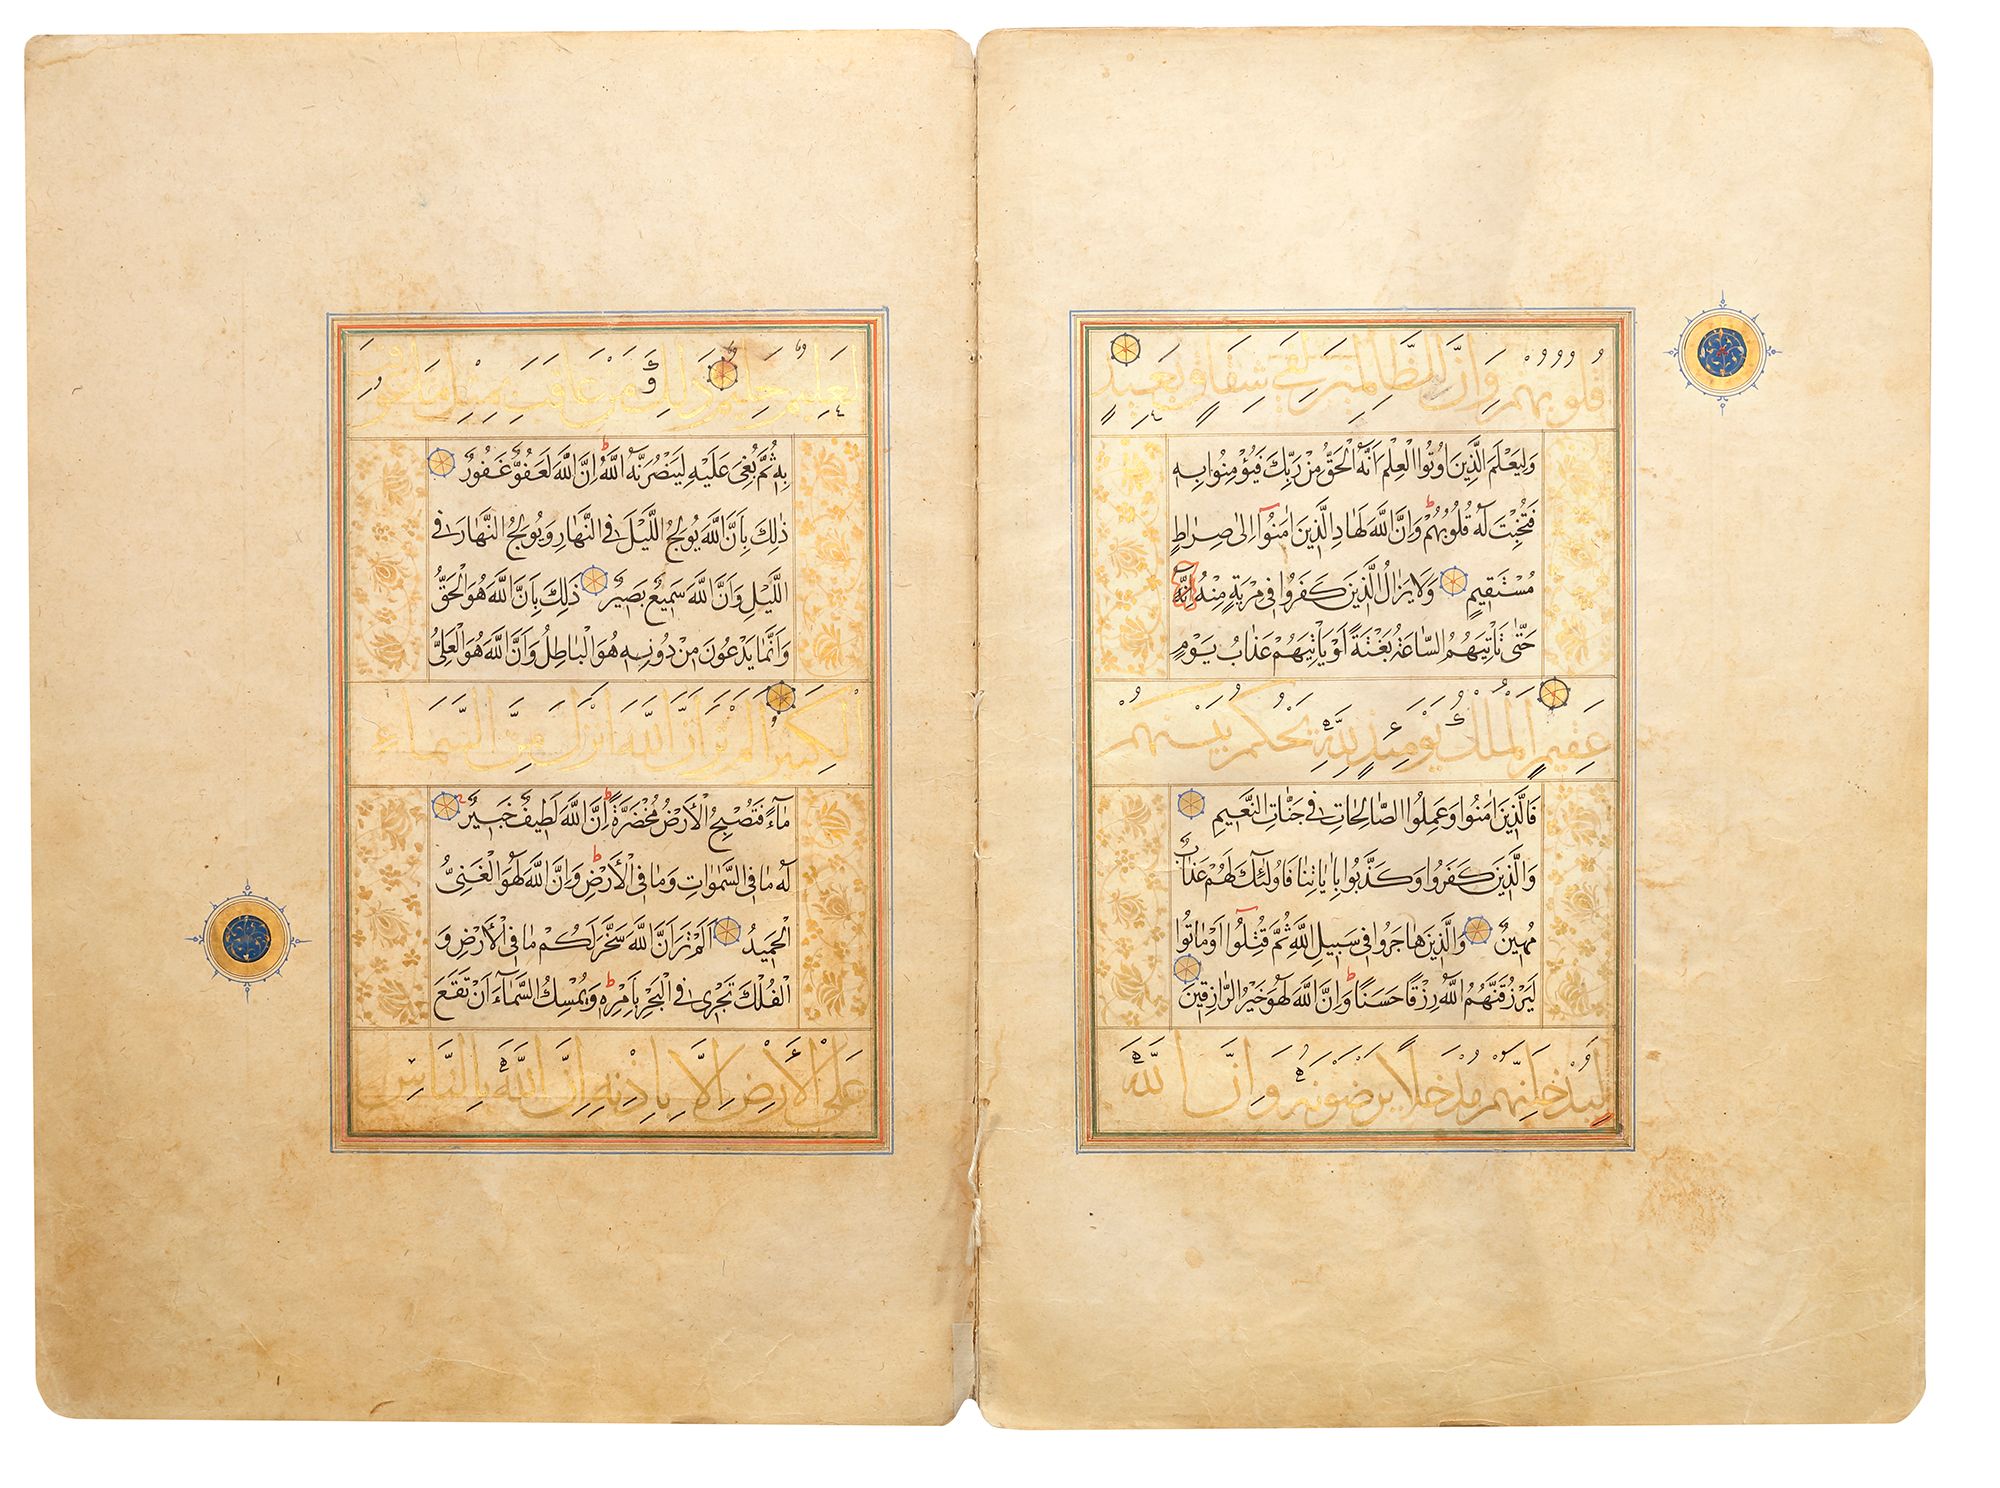 قُلُوبُهُمْ وَاِنَّ الظَّالِمِينَ لَفِي شِقَاقٍ بَعِيدٍ
وَلِيَعْلَمَ الَّذِينَ اُوتُوا الْعِلْمَ اَنَّهُ الْحَقُّ مِنْ رَبِّكَ فَيُؤْمِنُوا بِهِ
فَتُخْبِتَ لَهُ قُلُوبُهُمْ وَاِنَّ اللَّهَ لَهَادِ الَّذِينَ اٰمَنُوا اِلٰى صِرَاطٍ
مُسْتَقِيمٍ وَلَا يَزَالُ الَّذِينَ كَفَرُوا فِي مِرْيَةٍ مِنْهُ
حَتّٰى تَاْتِيَهُمُ السَّاعَةُ بَغْتَةً اَوْ يَاْتِيَهُمْ عَذَابُ يَوْمٍ
عَقِيمٍ اَلْمُلْكُ يَوْمَئِذٍ لِلّٰهِ يَحْكُمُ بَيْنَهُمْ
فَالَّذِينَ اٰمَنُوا وَعَمِلُوا الصَّالِحَاتِ فِي جَنَّاتِ النَّعِيمِ
وَالَّذِينَ كَفَرُوا وَكَذَّبُوا بِاٰيَاتِنَا فَاُولٰئِكَ لَهُمْ عَذَابٌ
مُهِينٌ وَالَّذِينَ هَاجَرُوا فِي سَبِيلِ اللَّهِ ثُمَّ قُتِلُوا اَوْ مَاتُوا
لَيَرْزُقَنَّهُمُ اللَّهُ رِزْقًا حَسَنًا وَاِنَّ اللَّهَ لَهُوَ خَيْرُ الرَّازِقِينَ
لَيُدْخِلَنَّهُمْ مُدْخَلًا يَرْضَوْنَهُ وَاِنَّ اللَّهَ
لَعَلِيمٌ حَلِيمٌ ذٰلِكَ وَمَنْ عَاقَبَ بِمِثْلِ مَا عُوقِبَ
بِهِ ثُمَّ بُغِيَ عَلَيْهِ لَيَنْصُرَنَّهُ اللَّهُ اِنَّ اللَّهَ لَعَفُوٌّ غَفُورٌ
ذٰلِكَ بِاَنَّ اللَّهَ يُولِجُ اللَّيْلَ فِي النَّهَارِ وَيُولِجُ النَّهَارَ فِي
اللَّيْلِ وَاَنَّ اللَّهَ سَمِيعٌ بَصِيرٌ ذٰلِكَ بِاَنَّ اللَّهَ هُوَ الْحَقُّ
وَاَنَّمَا يَدْعُونَ مِنْ دُونِهِ هُوَ الْبَاطِلُ وَاَنَّ اللَّهَ هُوَ الْعَلِيُّ
الْكَبِيرُ اَلَمْ تَرَ اَنَّ اللَّهَ اَنْزَلَ مِنَ السَّمَاءِ
مَاءً فَتُصْبِحُ الْاَرْضُ مُخْضَرَّةً اِنَّ اللَّهَ لَطِيفٌ خَبِيرٌ
لَهُ مَا فِي السَّمٰوَاتِ وَمَا فِي الْاَرْضِ وَاِنَّ اللَّهَ لَهُوَ الْغَنِيُّ
الْحَمِيدُ اَلَمْ تَرَ اَنَّ اللَّهَ سَخَّرَ لَكُمْ مَا فِي الْاَرْضِ وَ
الْفُلْكَ تَجْرِي فِي الْبَحْرِ بِاَمْرِهِ وَيُمْسِكُ السَّمَاءَ اَنْ تَقَعَ
عَلَى الْاَرْضِ اِلَّا بِاِذْنِهِ اِنَّ اللَّهَ بِالنَّاسِ